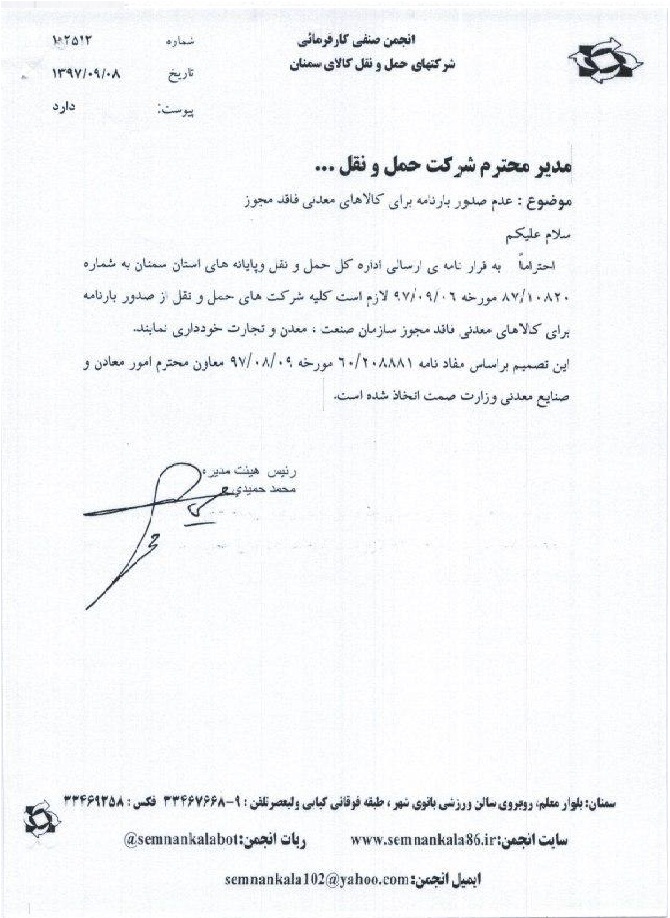 انجمن صنفی کارفرمائی
شرکتهای حمل و نقل کالای سمنان
شماره ۱۰۲۵۱۲
تاریخ ۱۳۹۷/۰۹/۰۸
پیوست: دارد
مدیر محترم شرکت حمل و نقل ...
موضوع : عدم صدور بارنامه برای کالاهای معدنی فاقد مجوز
سلام علیکم
احتراماً به قرار نامه ی ارسالی اداره کل حمل و نقل وپایانه های استان سمنان به شماره
۸۷/۱۰۸۲۰ مورخه ۹۷/۰۹/۰۶ لازم است کلیه شرکت های حمل و نقل از صدور بارنامه
برای کالاهای معدنی فاقد مجوز سازمان صنعت ، معدن و تجارت خودداری نمایند.
این تصمیم براساس مفاد نامه ۶۰/۲۰۸۸۸۱ مورخه ۹۷/۰۸/۰۹ معاون محترم امور معادن و
صنایع معدنی وزارت صمت اتخاذ شده است.
رئیس هیئت مدیره
محمد حمیدی
سمنان: بلوار معلم، روبروی سالن ورزشی بانوی شهر ، طبقه فوقانی کبابی ولیعصرتلفن : ۹-۳۳۴۶۷۶۶۸ فکس : ۳۳۴۶۹۳۵۸
سایت انجمن:www.semnankala86.ir ربات انجمن:semnankalabot@
ایمیل انجمن:semnankala102@yahoo.com